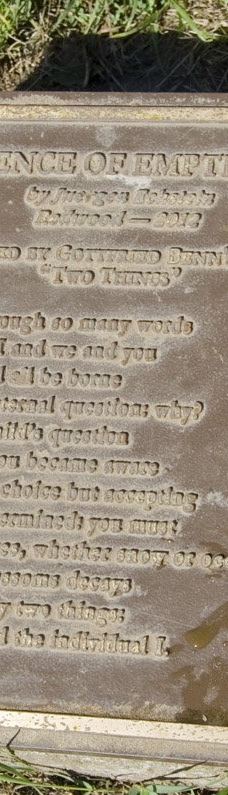 ENCE OF EMPTI
by Juergen Eckstein
Redwood — 2012
ED BY GOTTFRIED BENN'
"TWO THINGS"
ough so many words
I and we and you
l all be borne
eternal question: why?
hild's question
ou became aware
choice but accepting
ermined: you must
es, whether snow or oc
ossoms decays
y two things:
d the individual I.